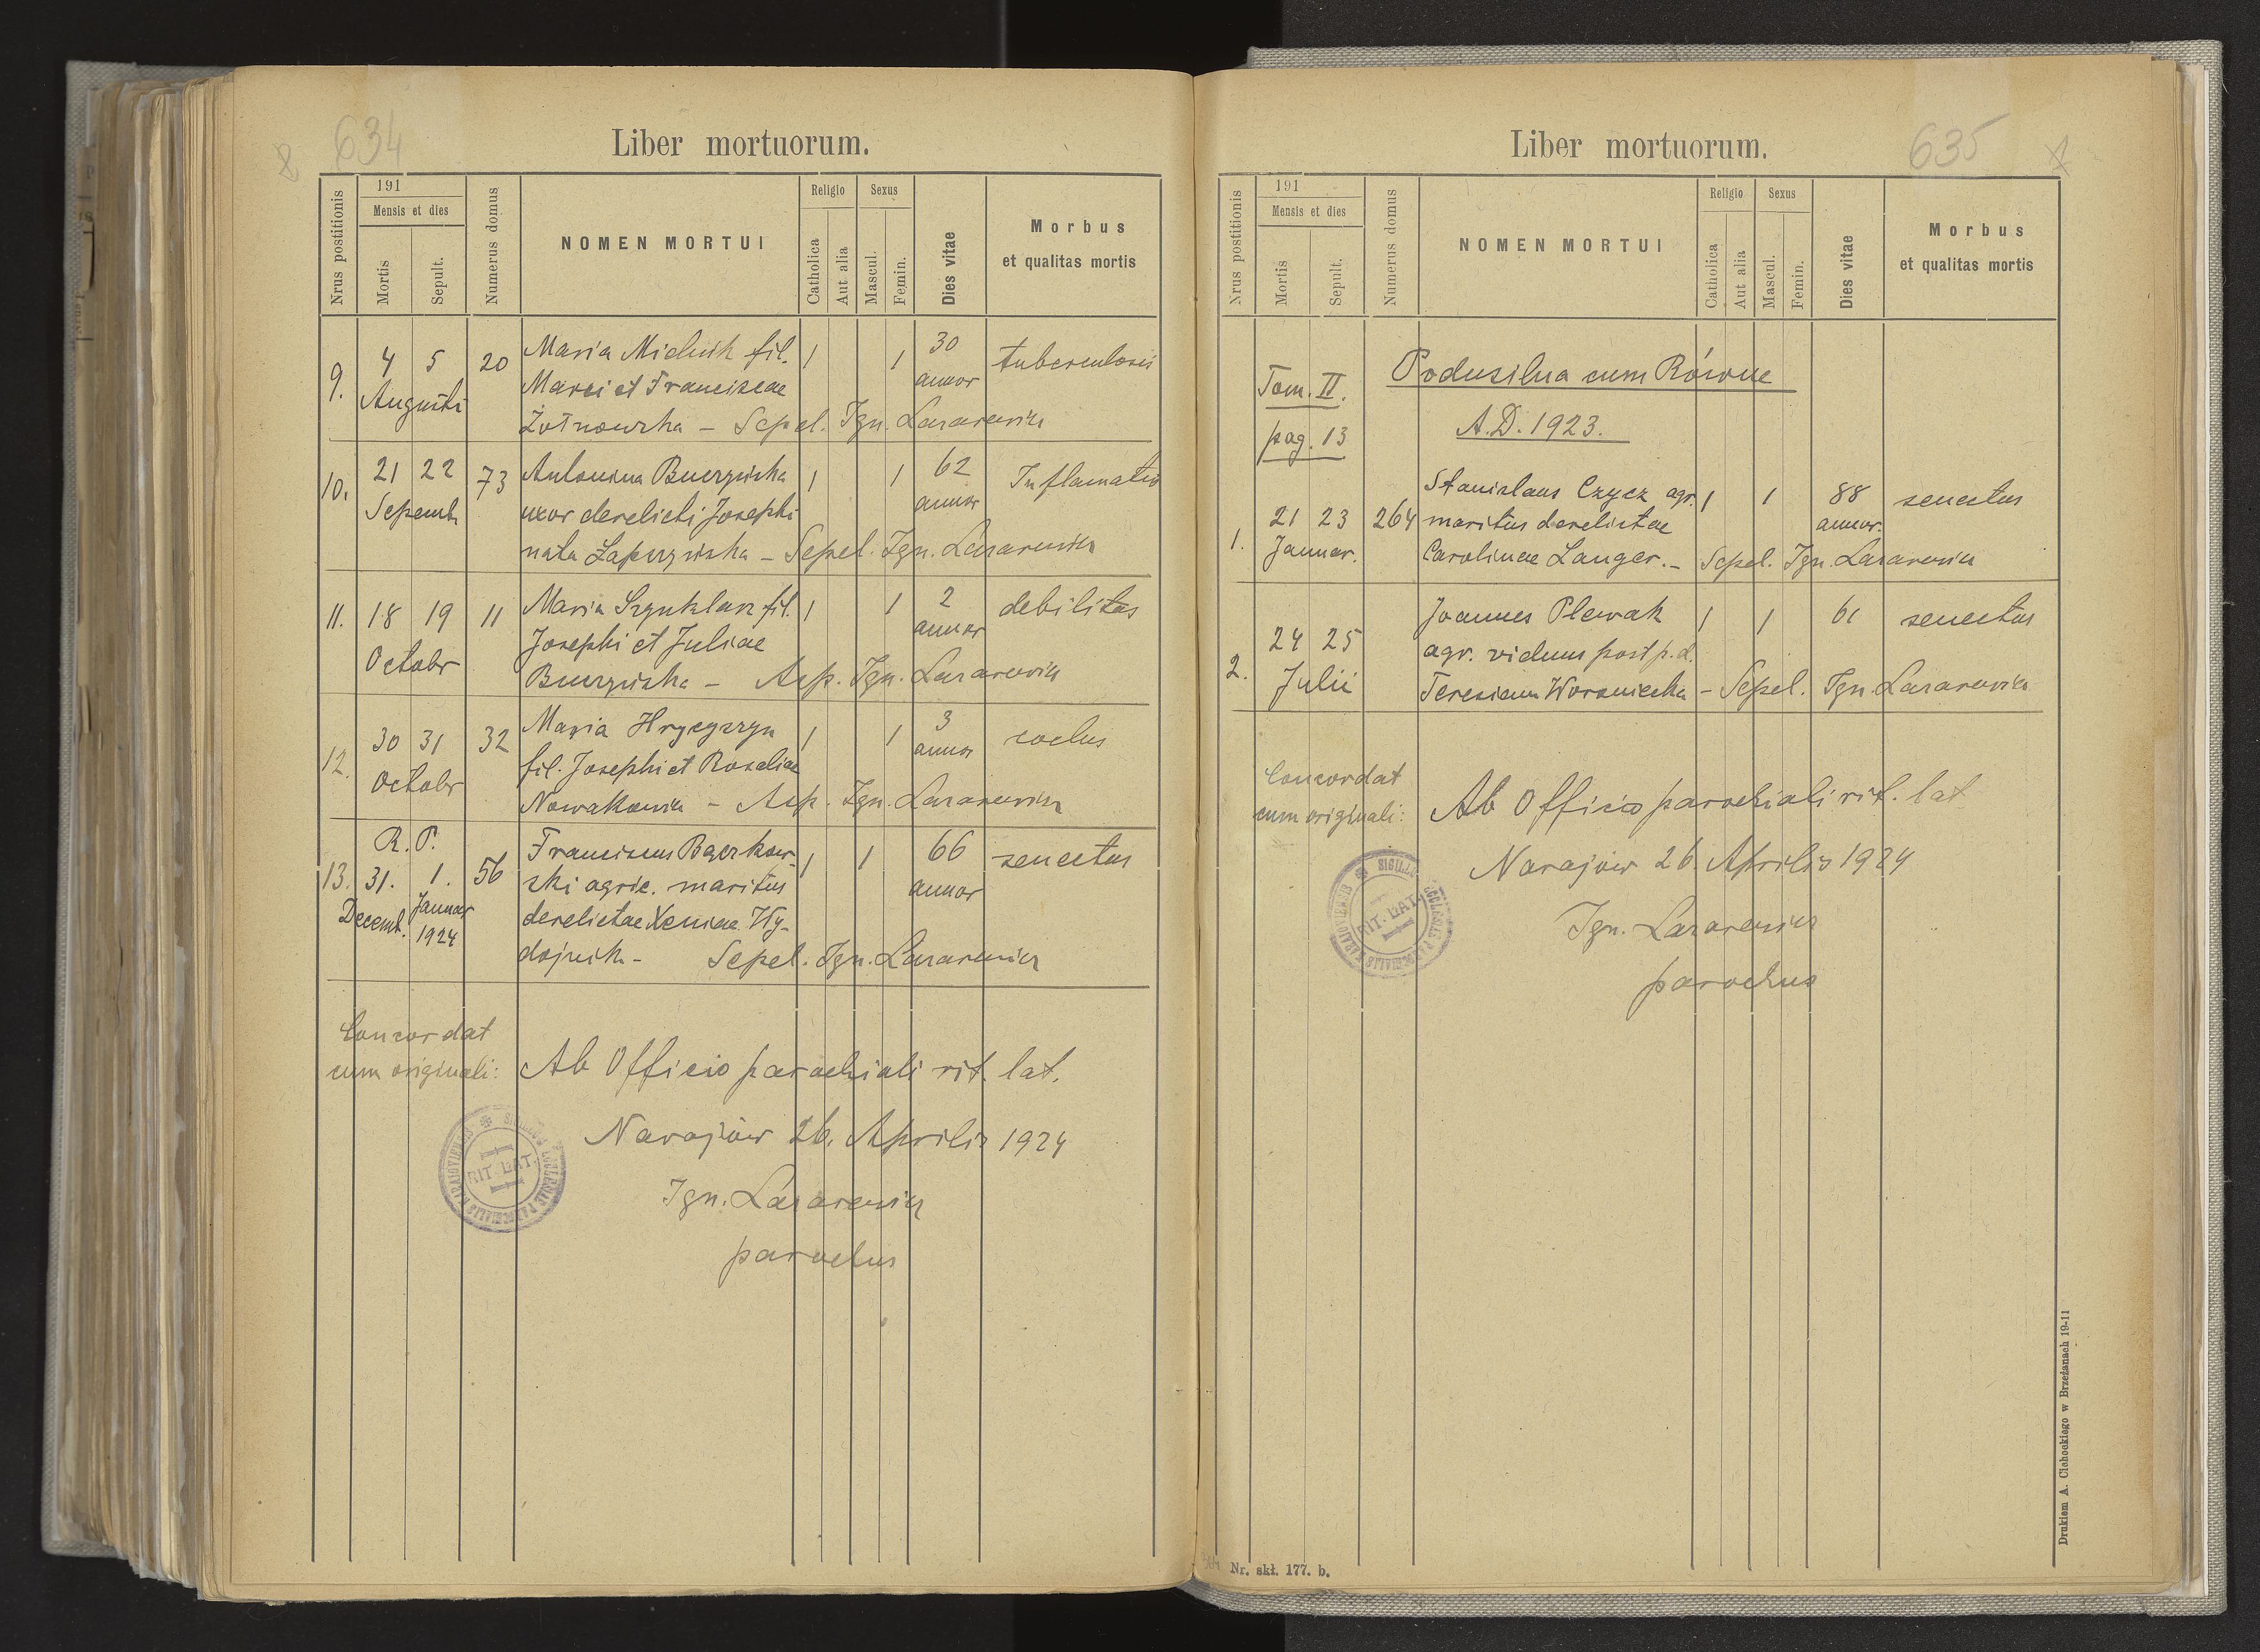 634
Liber mortuorum.
Nrus postitionis
191
Mensis et dies
Mortis
Sepult.
Numerus domus
NOMEN MORTUI
Religio
Catholica
Aut alia
Sexus
Mascul.
Femin.
Dies vitae
Morbus
et qualitas mortis
9. 4 5 20 Maria Michnik fil. 1 1 30 tuberculosis
Augusti Marci et Franciscae annor
Żołnowska – Sepel. Ign. Lazarewicz
10. 21 22 73 Antonina 1 1 62 Inflamatio
Septemb. uxor derelicti Josephi annor
nata – Sepel. Ign. Lazarewicz
11. 18 19 11 Maria fil. 1 1 2 debilitas
Octobr Josephi et Juliae annor
– Asp. Ign. Lazarewicz
12. 30 31 32 Maria Hrycyszyn 1 1 3
Octobr fil. Josephi et Rosaliae annor
Nowakowicz – Asp. Ign. Lazarewicz
R. P.
13. 31. 1. 56 Franciscus Baczkow- 1 1 66 senectus
Decemb. Januar 1924 ski agric. maritus annor
derelictae Xeniae Wy-
dojnik – Sepel. Ign. Lazarewicz
Concordat
cum originali: Ab Officio parochiali rit. lat.
Narajów 26. Aprilis 1924
Ign. Lazarewicz
parochus
RIT. LAT.
635
Liber mortuorum.
Nrus postitionis
191
Mensis et dies
Mortis
Sepult.
Numerus domus
NOMEN MORTUI
Religio
Catholica
Aut alia
Sexus
Mascul.
Femin.
Dies vitae
Morbus
et qualitas mortis
Tom. II. Podusilna cum Równe
pag. 13 A.D. 1923.
Stanislaus Czycz agr. 1 1 88 senectus
1. 21 23 264 maritus derelictae annor.
Januar. Carolinae Langer. – Sepel. Ign. Lazarewicz
Joannes Plewak 1 1 61 senectus
2. 24 25 agr. viduus post p. d.
Julii Teresiam Woroniecka – Sepel. Ign. Lazarewicz
Concordat
cum originali: Ab Officio parochiali rit. lat
Narajów 26. Aprilis 1924
Ign. Lazarewicz
parochus
RIT. LAT.
Drukiem A. Cichockiego w Brzeżanach 19-11
Nr. skł. 177. b.